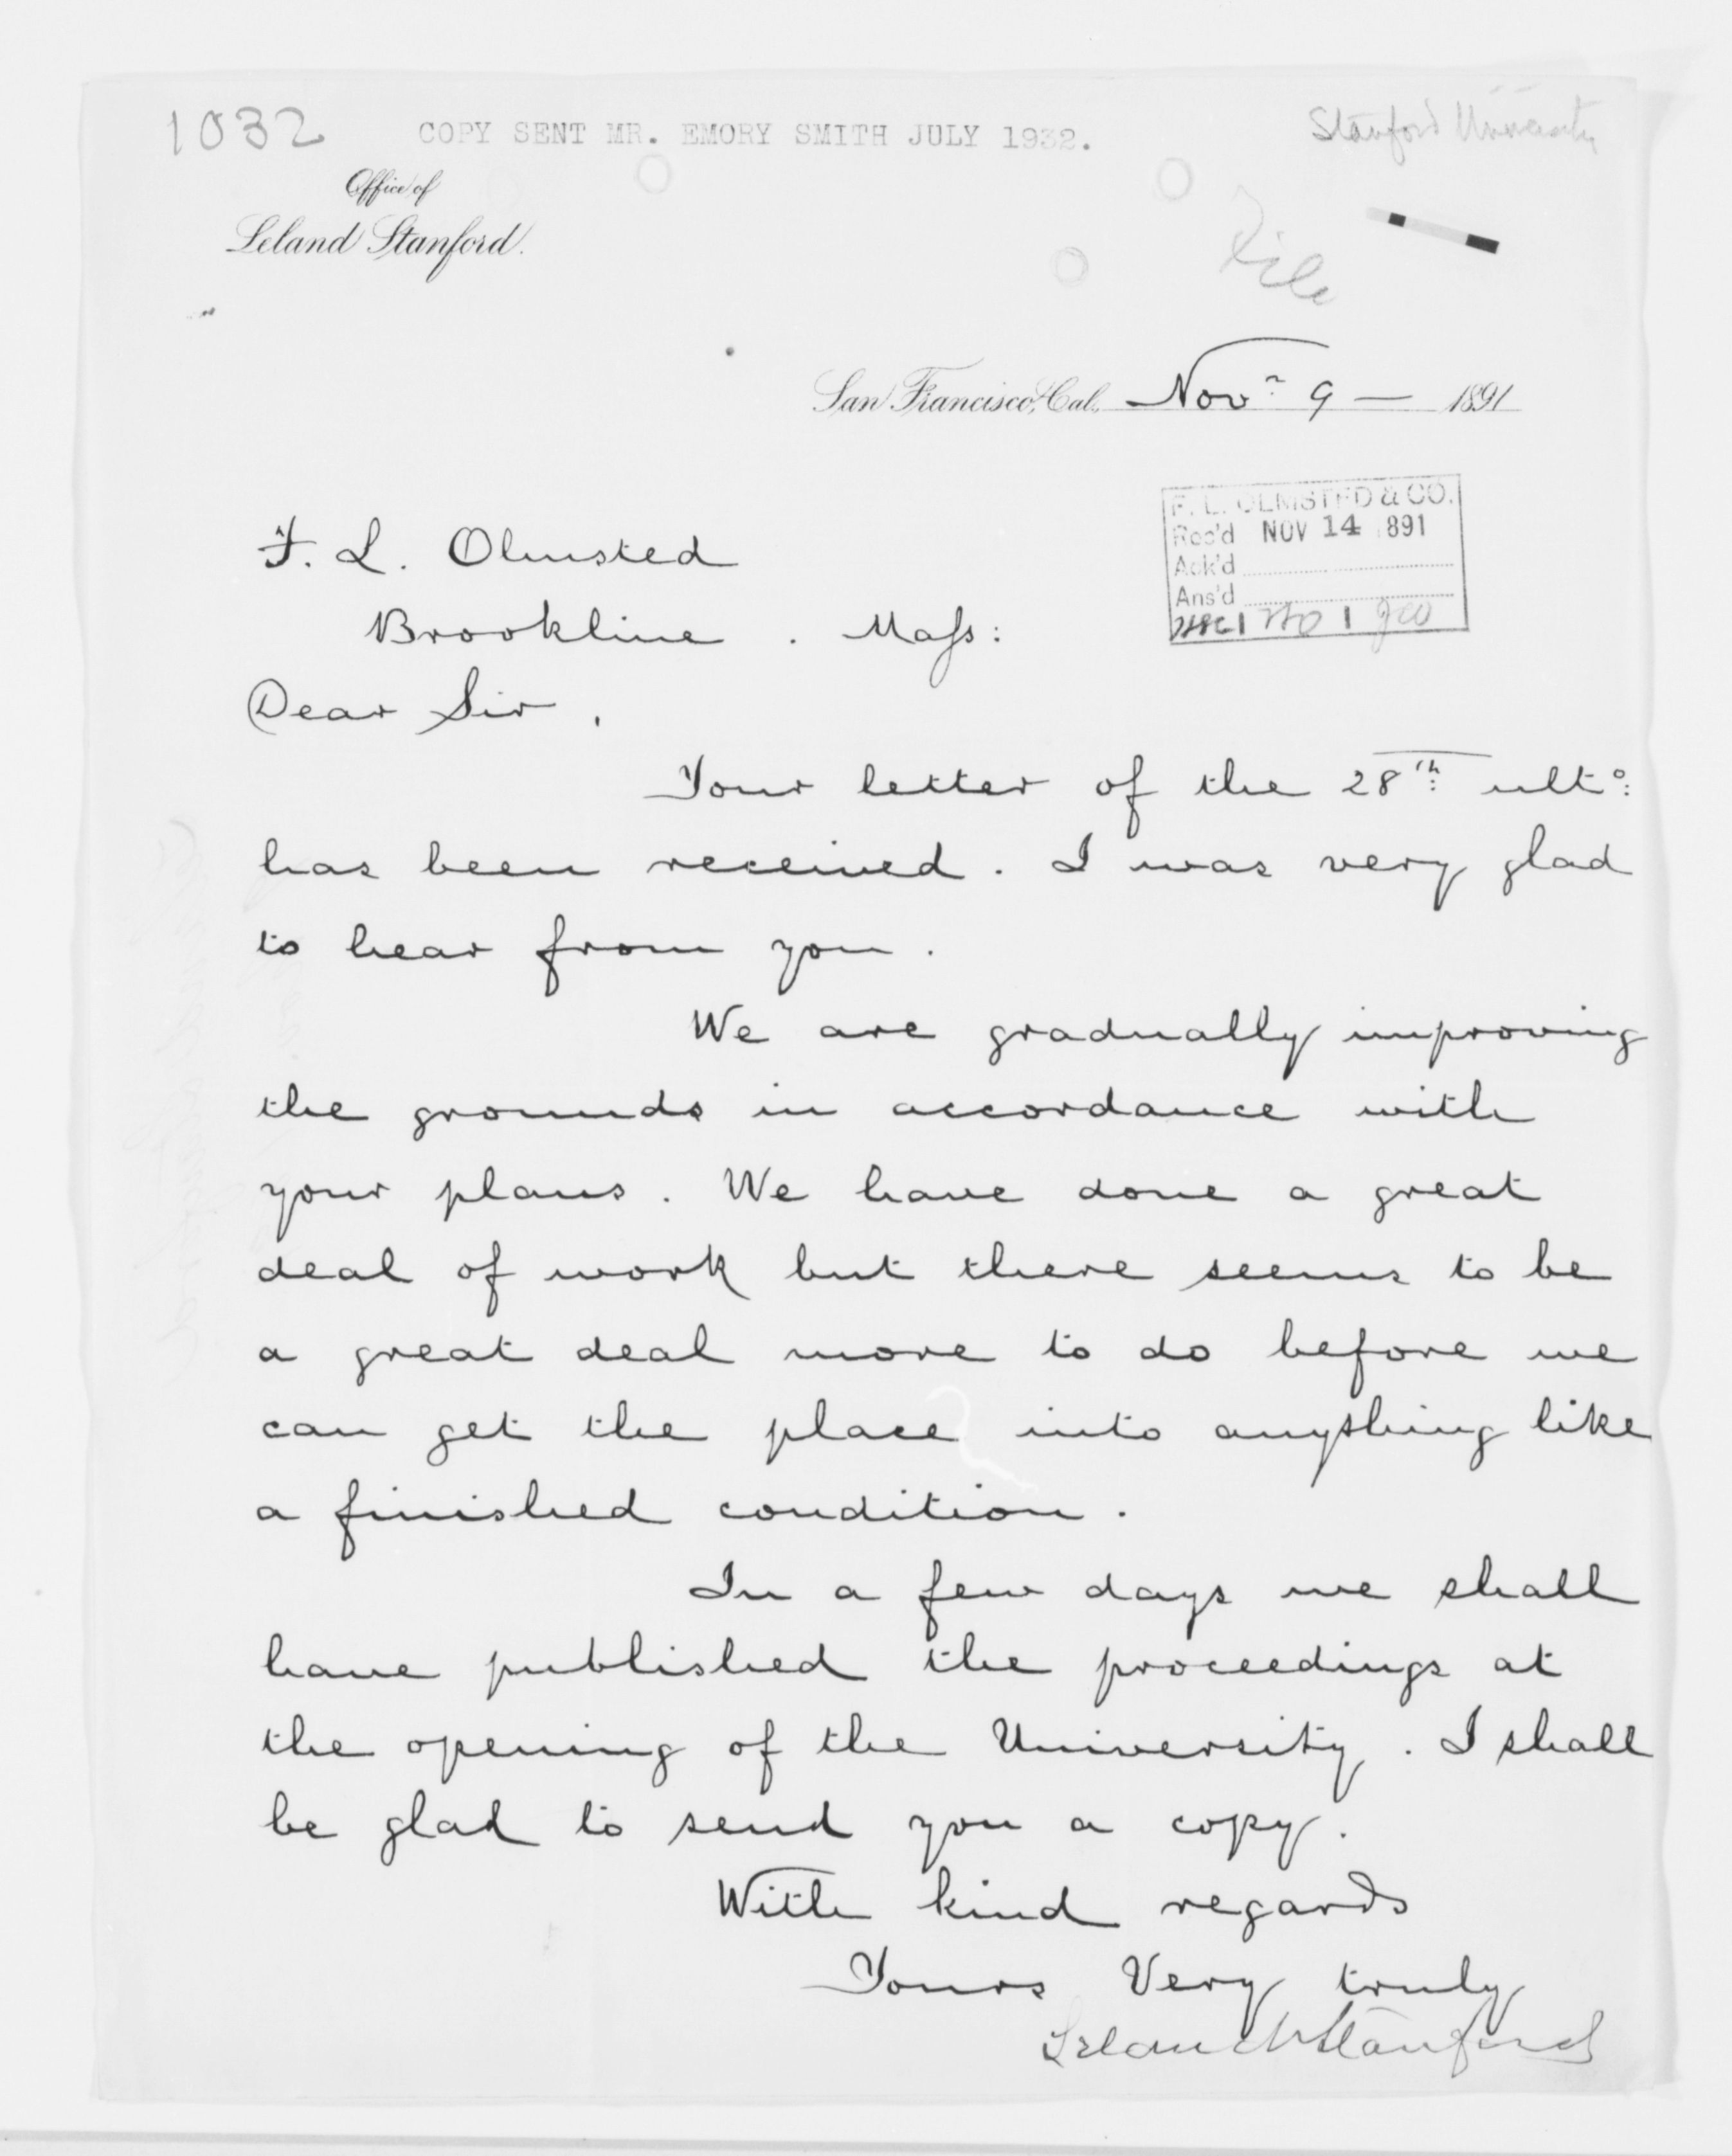 1032
COPY SENT MR. EMORY SMITH JULY 1932.
Stanford University
Office of
Leland Stanford.
File
San Francisco, Cal. Nov.r 9 — 1891
F. L. OLMSTED & CO.
Rec'd NOV 14 1891
Ack'd
Ans'd
F. L. Olmsted
Brookline . Mass:
Dear Sir,
Your letter of the 28th ulto:
has been received. I was very glad
to hear from you.
We are gradually improving
the grounds in accordance with
your plans. We have done a great
deal of work but there seems to be
a great deal more to do before we
can get the place into anything like
a finished condition.
In a few days we shall
have published the proceedings at
the opening of the University. I shall
be glad to send you a copy.
With kind regards
Yours Very truly
Leland Stanford